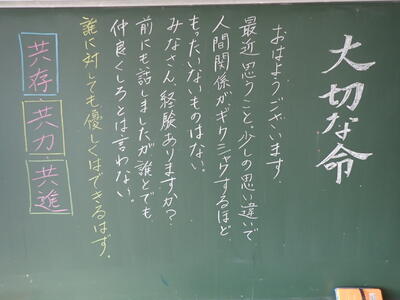 大切な命
おはようございます。
最近思うこと、少しの思い違いで
人間関係がギクシャクするほど
もったいないものはない。
みなさん、経験ありますか?
前にも話しましたが誰とでも
仲良くしろとは言わない。
誰に対しても優しくはできるはず。
共存・共力・共進